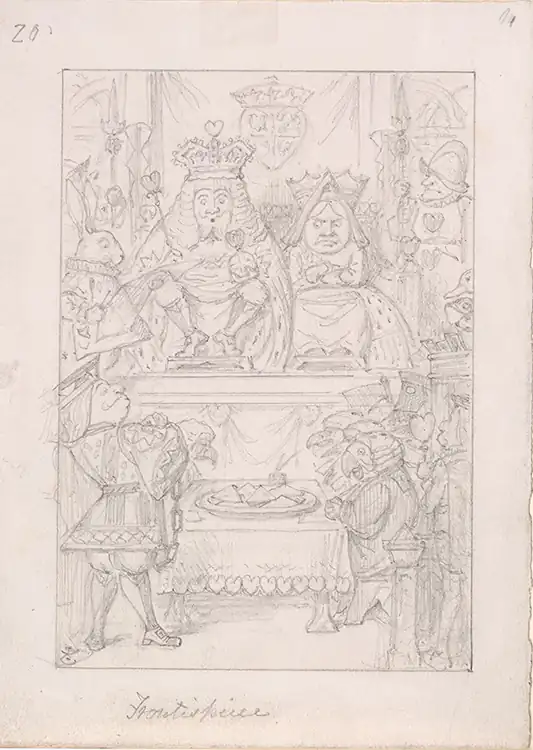 20
Frontispiece